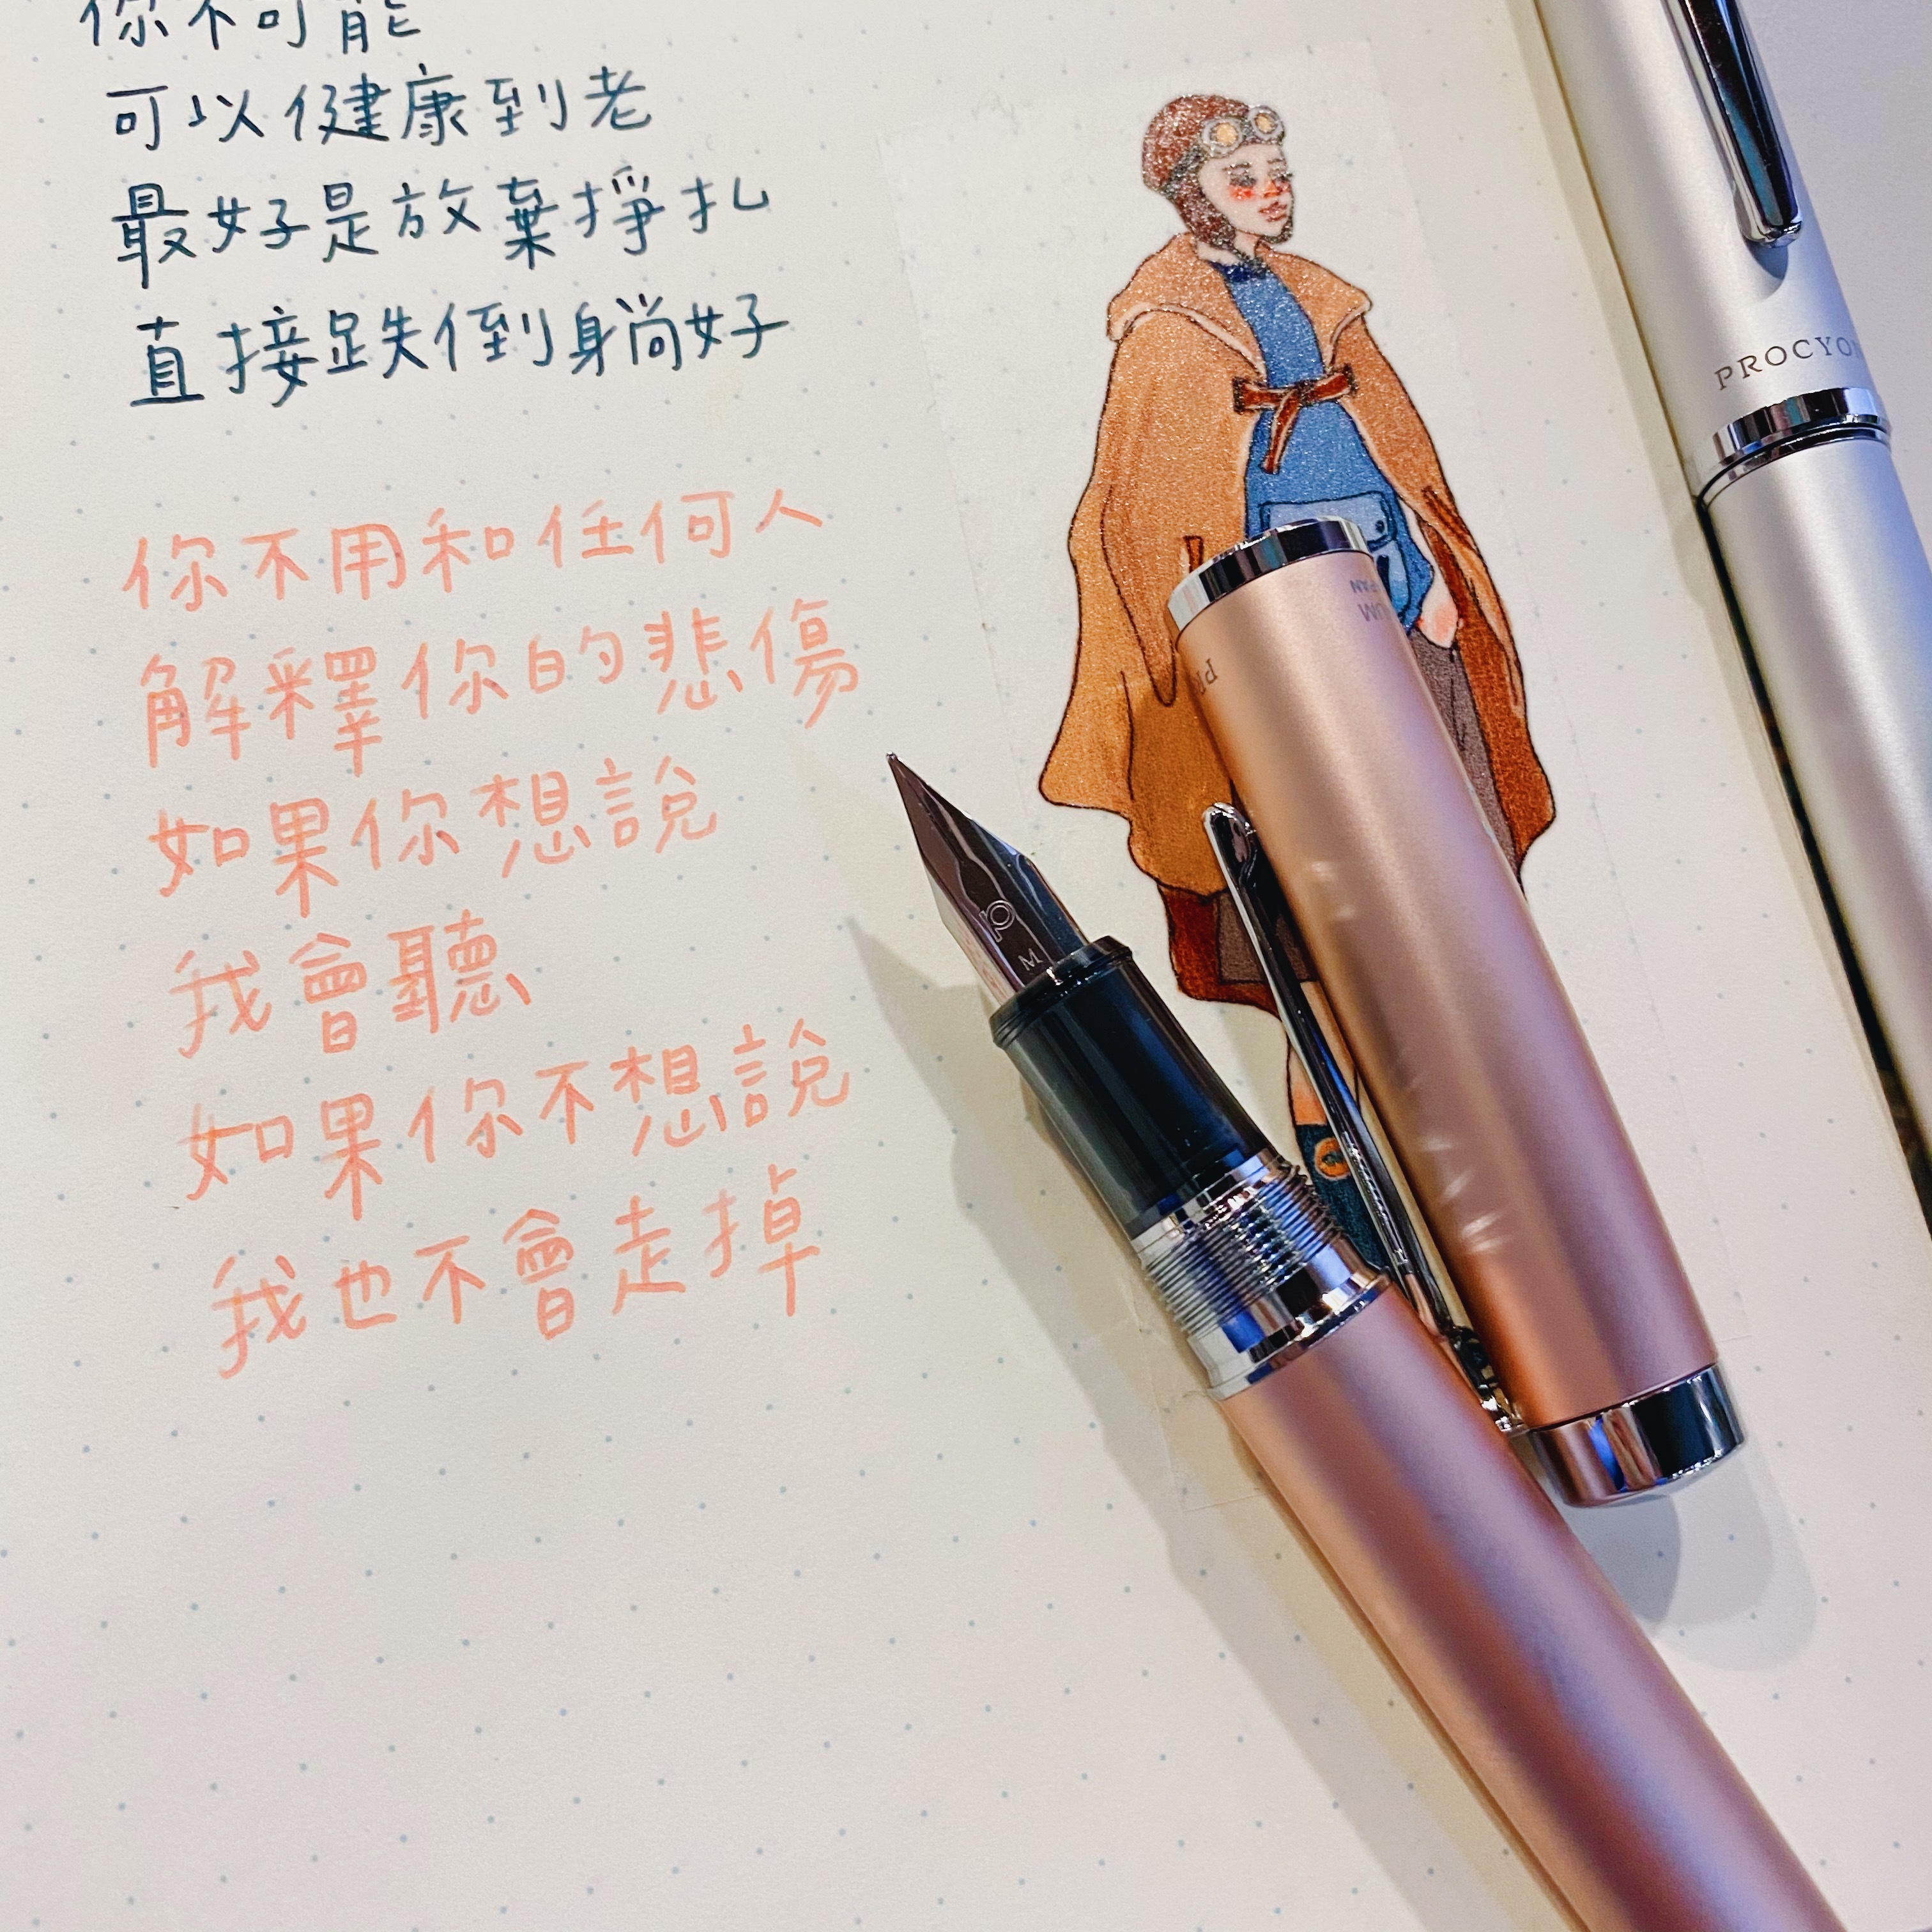 你不可能
可以健康到老
最好是放棄掙扎
直接跌倒躺好
你不用和任何人
解釋你的悲傷
如果你想說
我會聽
如果你不想說
我也不會走掉
PROCYON
P
M